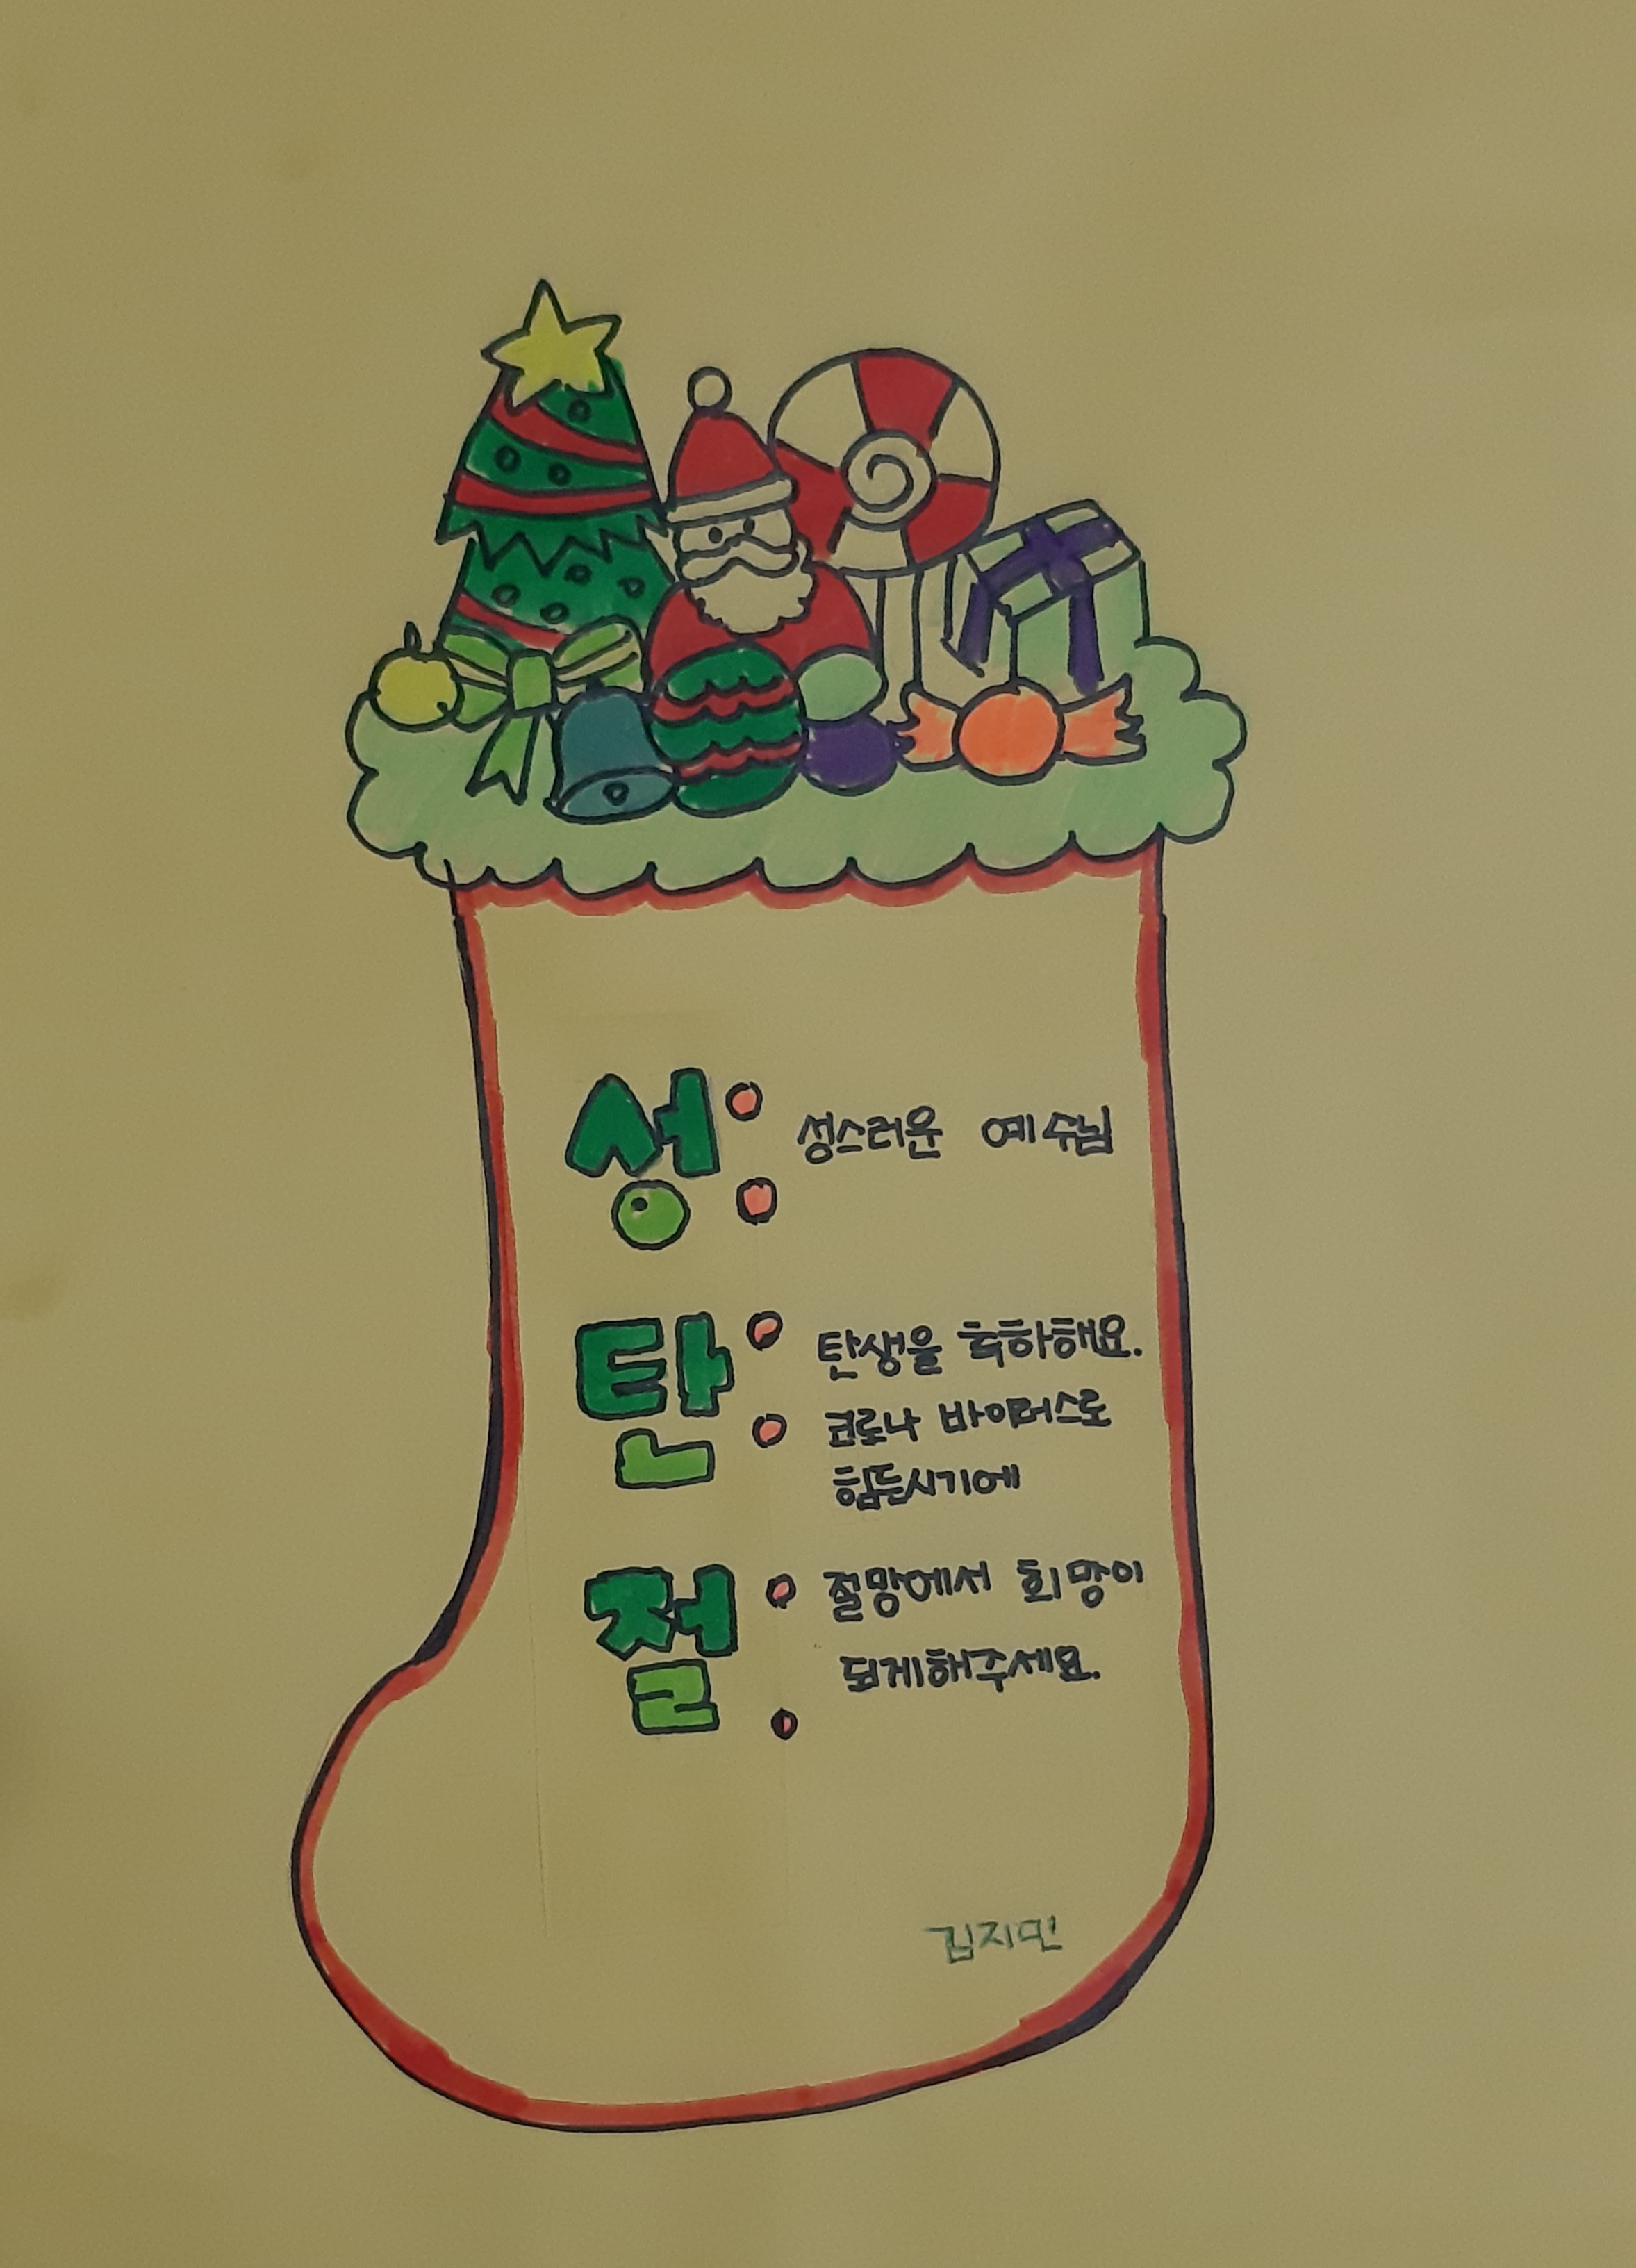 성: 성스러운 예수님
탄: 탄생을 축하해요.
코로나 바이러스로
힘든시기에
절: 절망에서 희망이
되게해주세요.
김지민